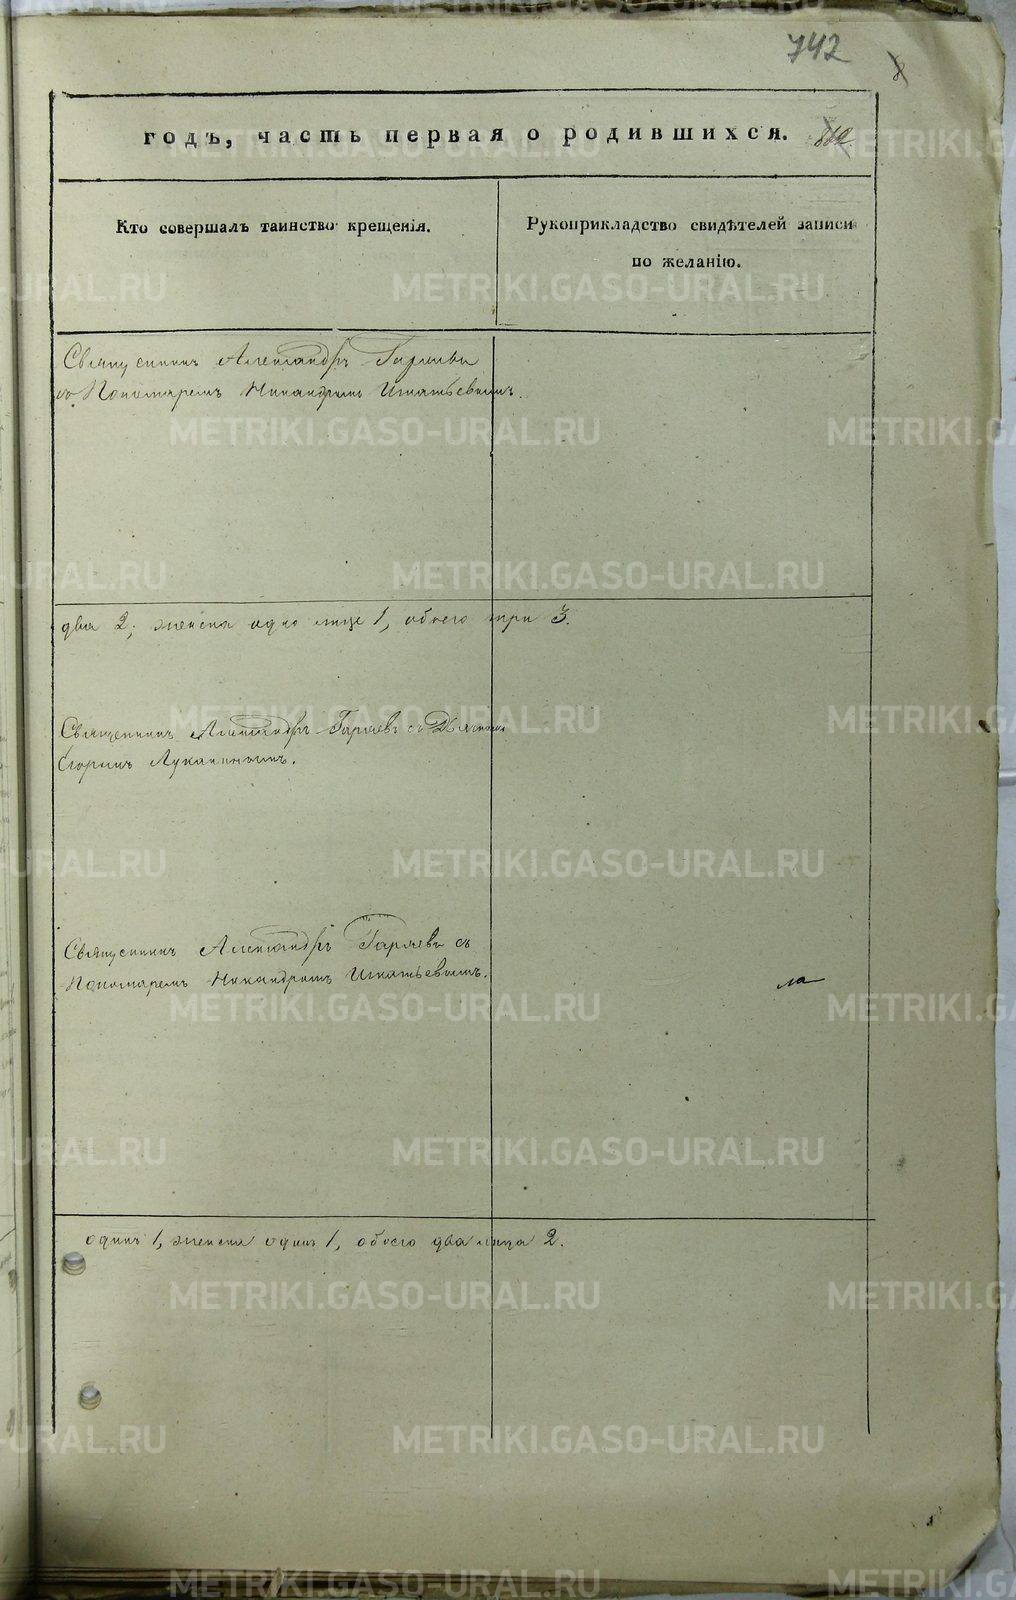 742
годъ, часть первая о родившихся.
Кто совершалъ таинство крещенія.
Рукоприкладство свидѣтелей записи
по желанію.
Священникъ Александръ Гаряевъ
съ Пономаремъ Никандромъ Игнатьевымъ.
два 2; женска одно лице 1, обоего три 3.
Священникъ Александръ Гаряевъ съ Дьячкомъ
Егоромъ Лукинымъ.
Священникъ Александръ Гаряевъ съ
Пономаремъ Никандромъ Игнатьевымъ.
ла
одинъ 1, женска один 1, обоего два лица 2.
METRIKI.GASO-URAL.RU